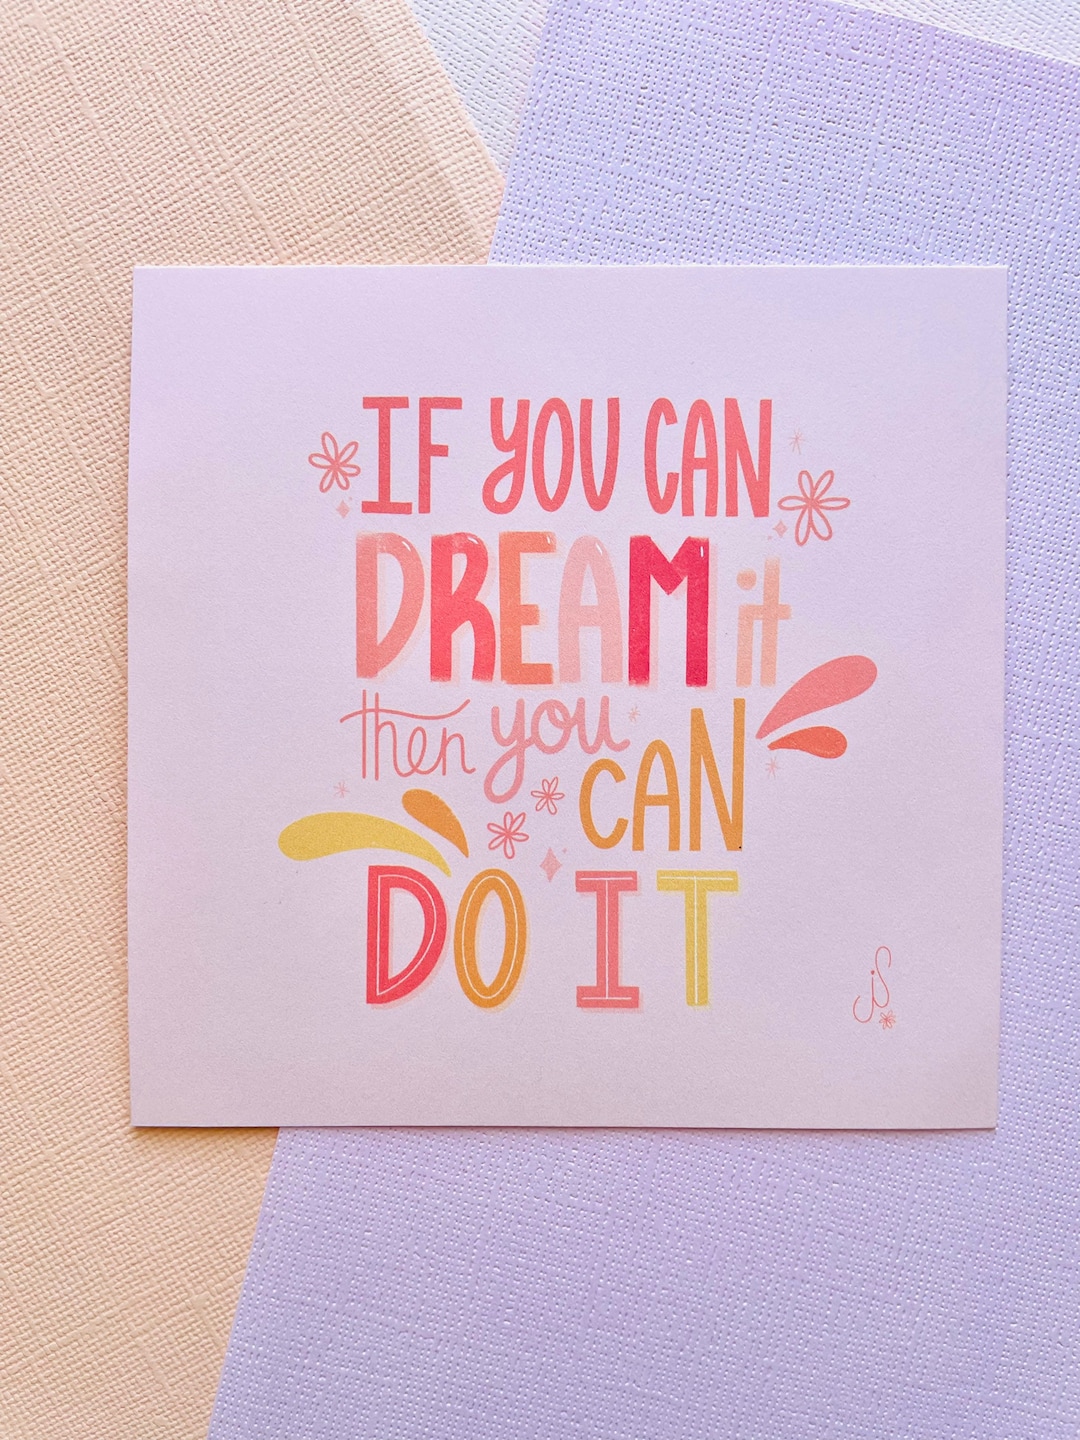 IF YOU CAN
DREAM it
then you
CAN
DO IT
js